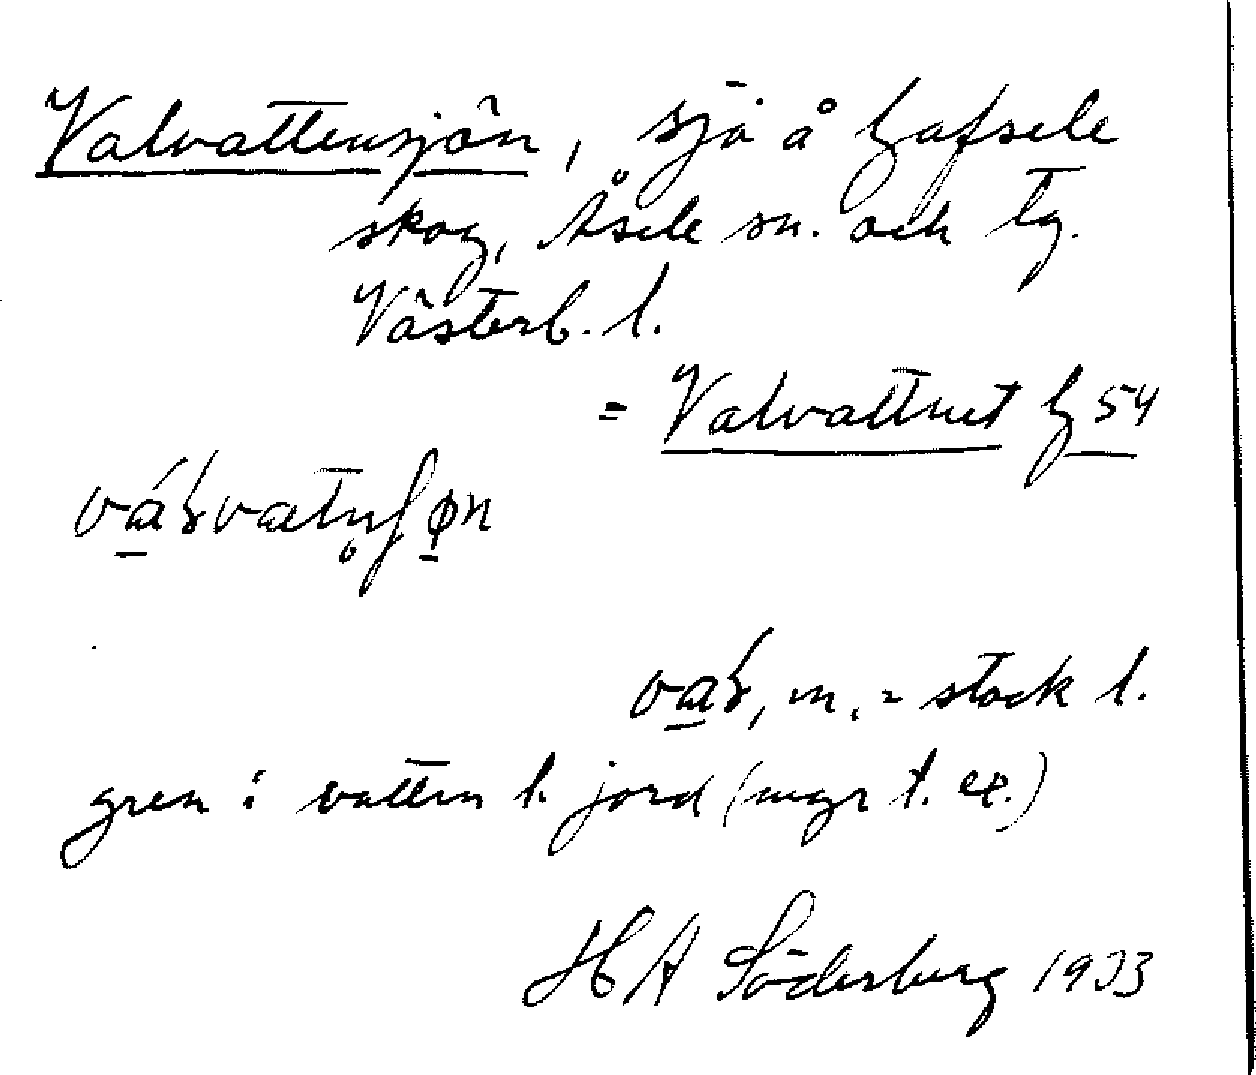 Valvattensjön, sjö å Gafsele
skog, Åsele sn. och lg.
Västerb. l.
= Valvattnet G 54
gren i vatten l. jord (myr t. ex.)
m. = stock l.
H A Söderberg 1933